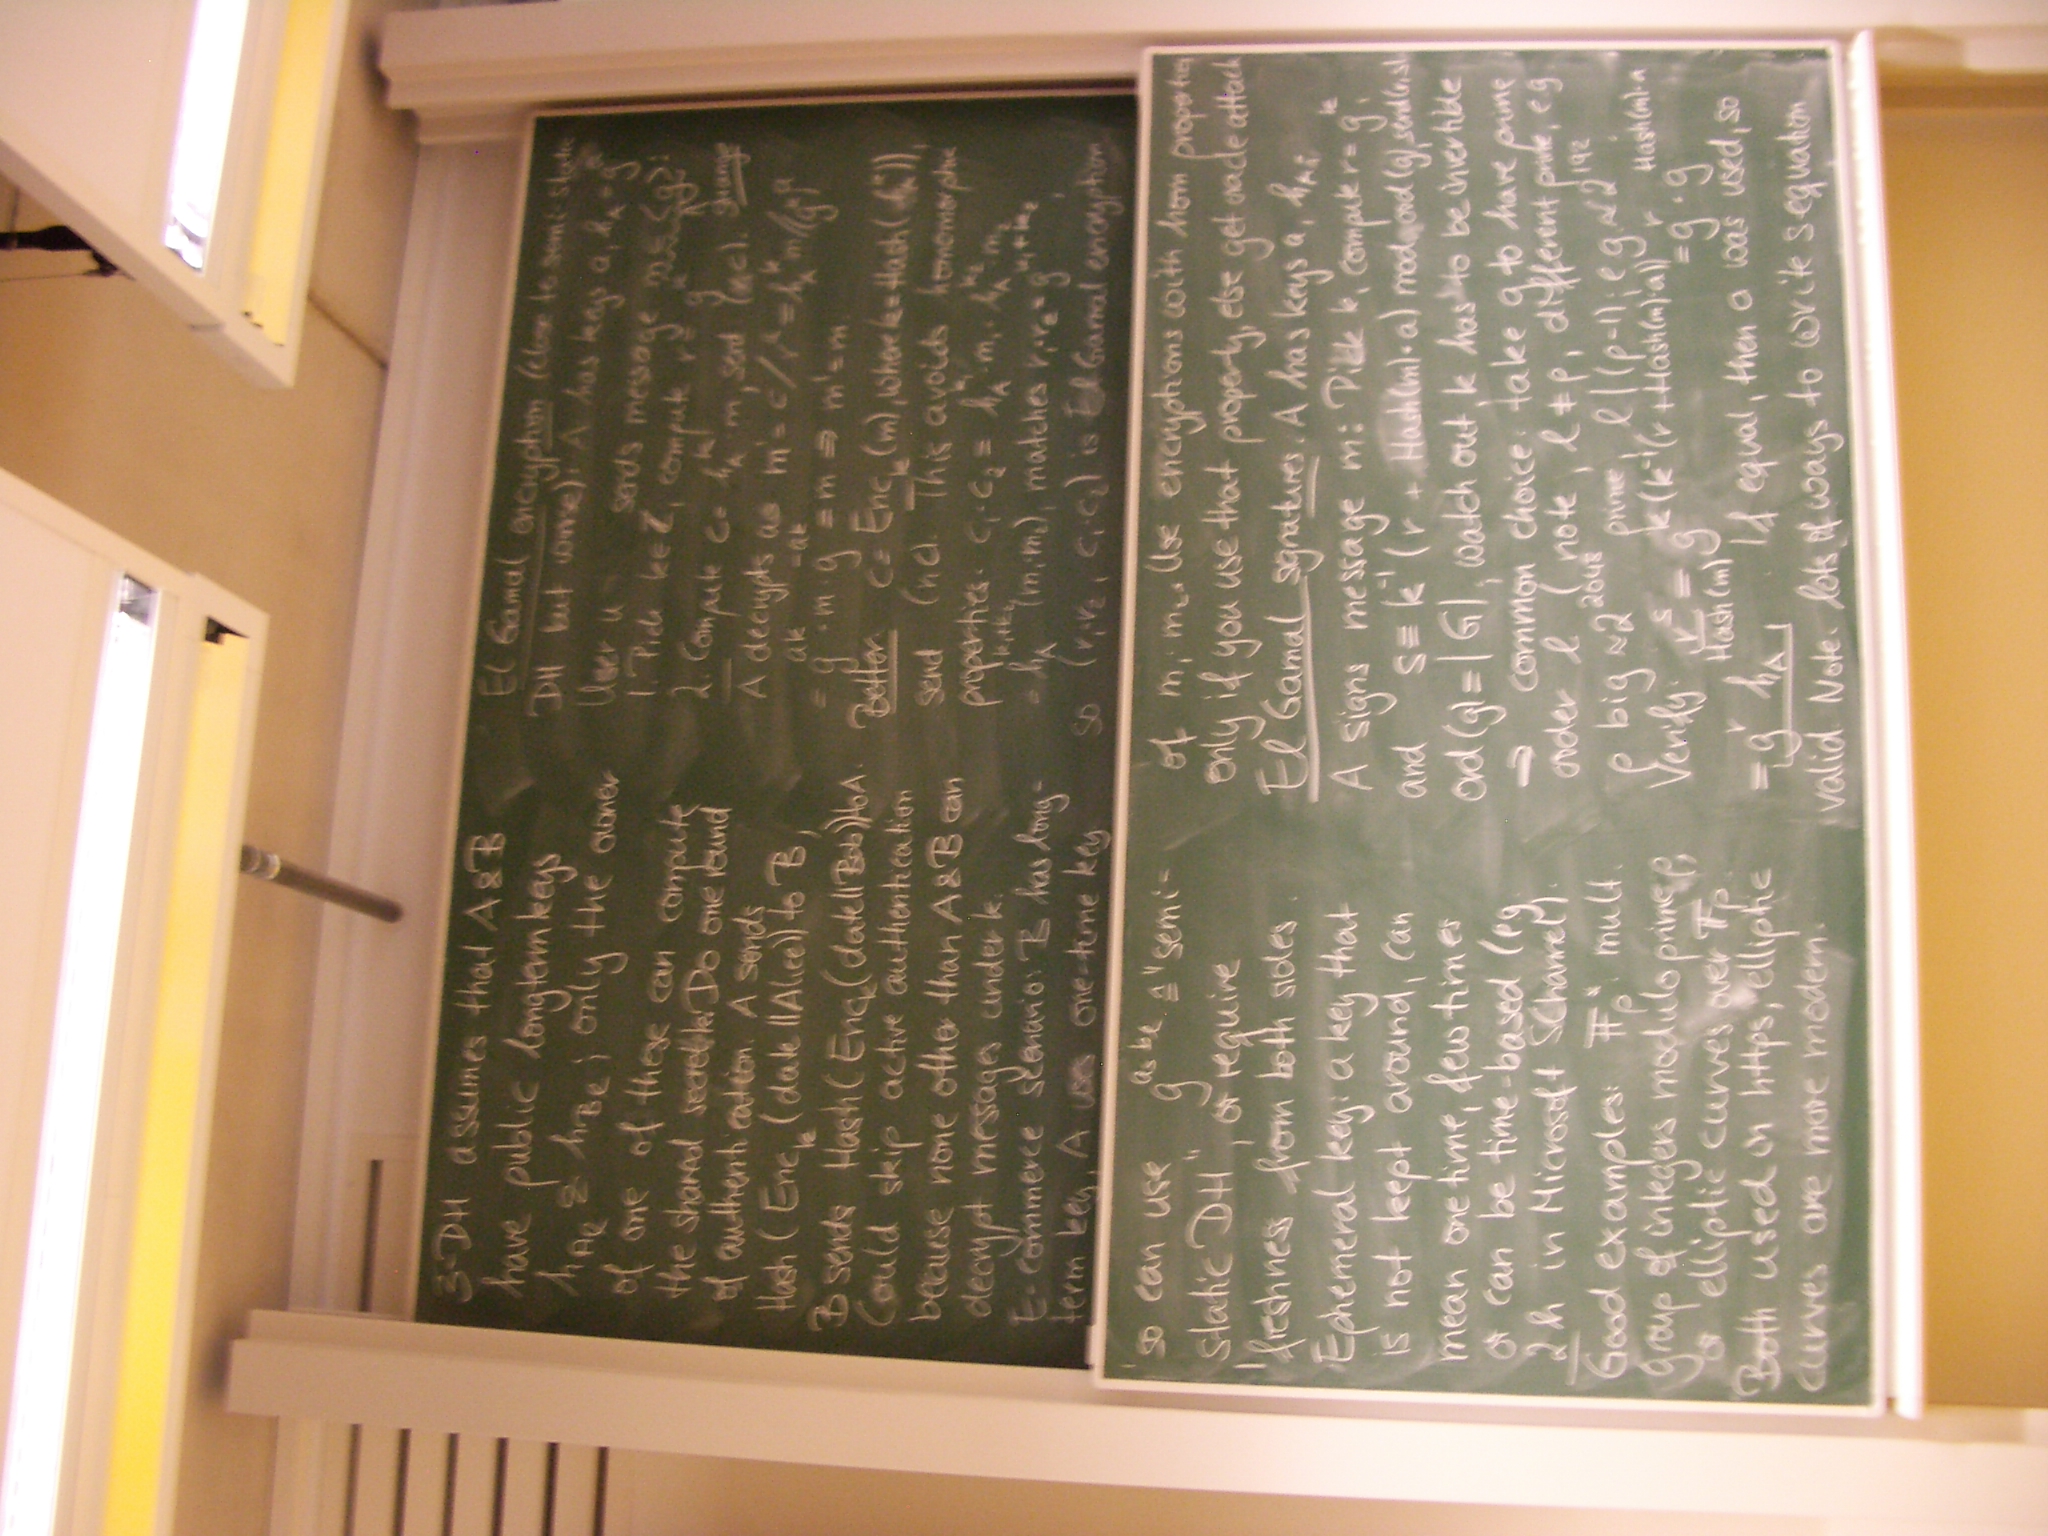 3-DH assumes that A & B
have public longterm keys
h_A & h_B ; only the owner
of one of these can compute
the shared secret k. Do one round
of authentication. A sends
Hash(Enc_k(date||Alice)) to B,
B sends Hash(Enc_k(date||Bob)) to A.
Could skip active authentication
because none other than A & B can
decrypt messages under k.
E-commerce scenario: B has long-
term key, A uses one-time key
so can use g^{as, be} "semi-
static DH", or require
freshness from both sides.
Ephemeral key: a key that
is not kept around, can
mean one time, few times
or can be time-based (eg.
2h in Microsoft SChannel).
Good examples: F_p^* mult.
group of integers modulo prime p,
or elliptic curves over F_p.
Both used in https, elliptic
curves are more modern.
El Gamal encryption (close to semi-static
DH but worse): A has keys a, h_A = g^a
User u sends message m ∈ <g>:
1. Pick k ∈ Z, compute r = g^k
2. Compute c = h_A^k · m, send (r,c).
A decrypts as m' = c/r^a = h_A^k m/(g^k)^a
= g^{ak} · m · g^{-ak} = m ⇒ m' = m
Better c = Enc_k(m), where k = Hash(h_A^k),
send (r,c). This avoids homomorphic
properties: c_1 · c_2 = h_A^{k_1} · m_1 · h_A^{k_2} m_2
= h_A^{k_1+k_2} (m_1 m_2), matches r_1 · r_2 = g^{k_1+k_2},
so (r_1 r_2, c_1 · c_2) is El Gamal encryption
of m_1 · m_2. Use encryptions with hom properties
only if you use that property, else get nade attack
El Gamal signatures. A has keys a, h_A.
A signs message m: Pick k, compute r = g^k,
and s ≡ k^{-1}(r + Hash(m)·a) mod ord(g), send (r,s)
ord(g) = |G|, watch out k has to be invertible
⇒ common choice: take g to have prime
order l (note, l ≠ p, different prime, eg
p big ≈ 2^{2048} prime l | (p-1); eg ≈ 2^{192}
Verify: r^s = g^{k(k^{-1}(r+Hash(m)a))} = g^r · g^{Hash(m)·a}
= g^r h_A^{Hash(m)} If equal, then a was used, so
valid. Note: lots of ways to write s equation